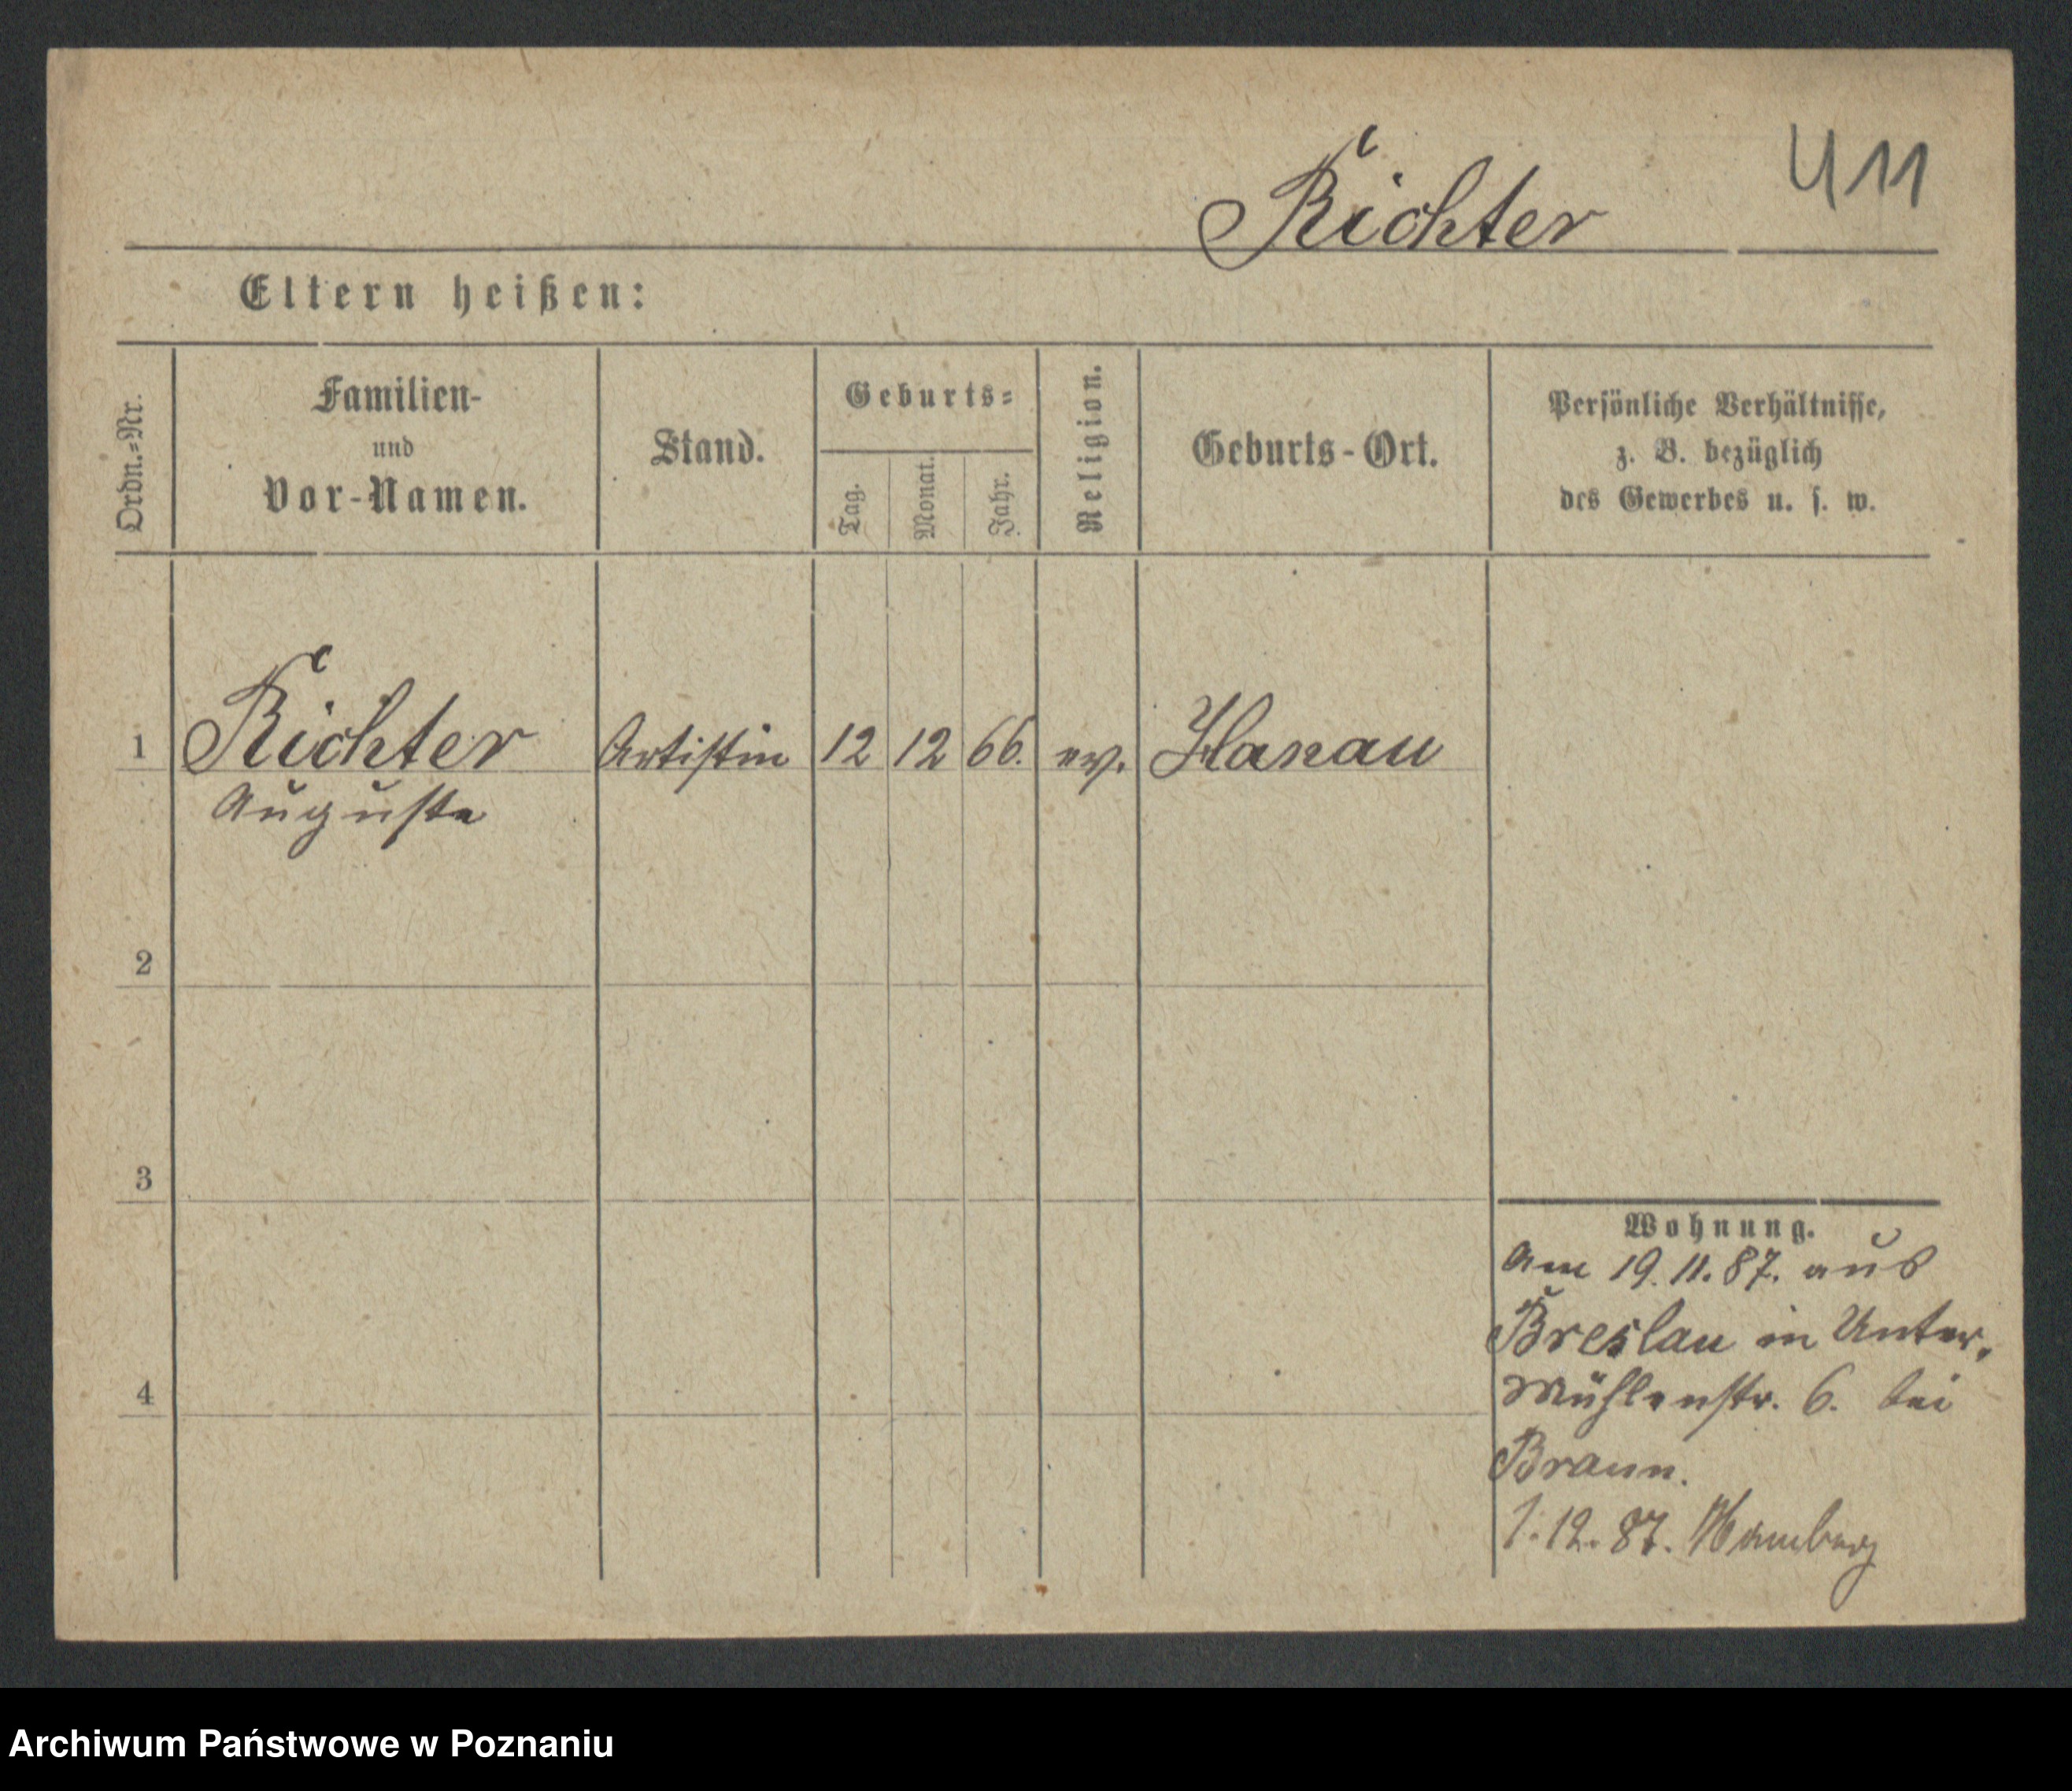 411
Richter
Eltern heißen:
Ordn.=Nr.
Familien-
und
Vor-Namen.
Stand.
Geburts=
Tag.
Monat.
Jahr.
Religion.
Geburts-Ort.
Persönliche Verhältnisse,
z. B. bezüglich
des Gewerbes u. s. w.
1 Richter Artistin 12 12 66. ev. Hanau
Auguste
2
3
4
Wohnung.
Am 19.11.87. aus
Breslau in Unter,
Mühlenstr. 6. bei
Braun.
1.12.87. Hamburg
Archiwum Państwowe w Poznaniu